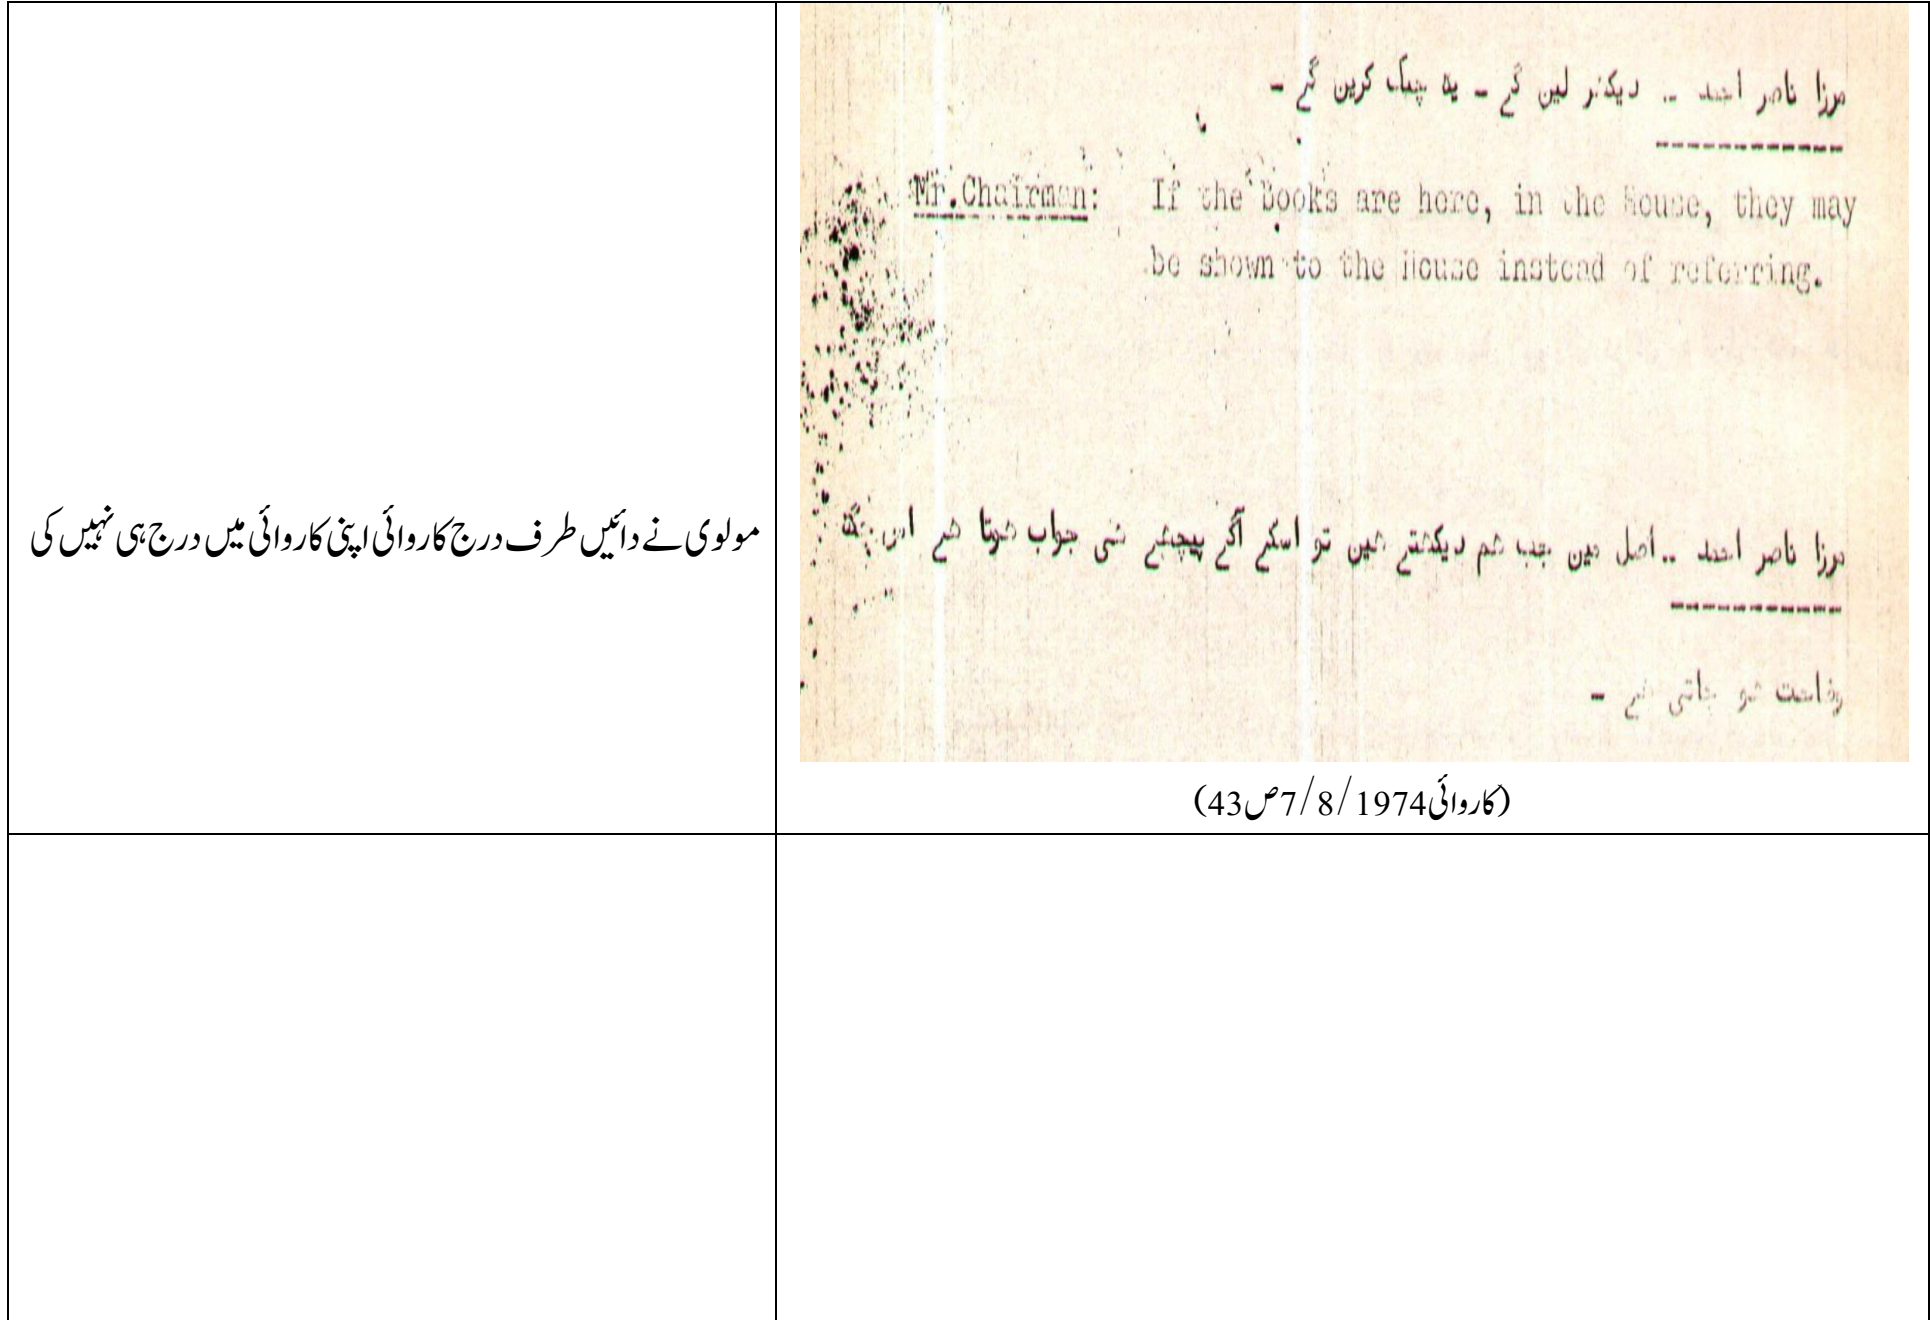 مرزا ناصر احمد .. دیکھ لیں گے ـ یہ چیک کریں گے ـ
Mr.Chairman: If the Books are here, in the House, they may
be shown to the House instead of referring.
مرزا ناصر احمد .. اصل میں جب ہم دیکھتے ہیں تو اسکے آگے پیچھے ہی جواب ہوتا ہے اس
وضاحت ہو جاتی ہے ـ
(کاروائی7/8/1974ص43)
مولوی نے دائیں طرف درج کاروائی اپنی کاروائی میں درج ہی نہیں کی